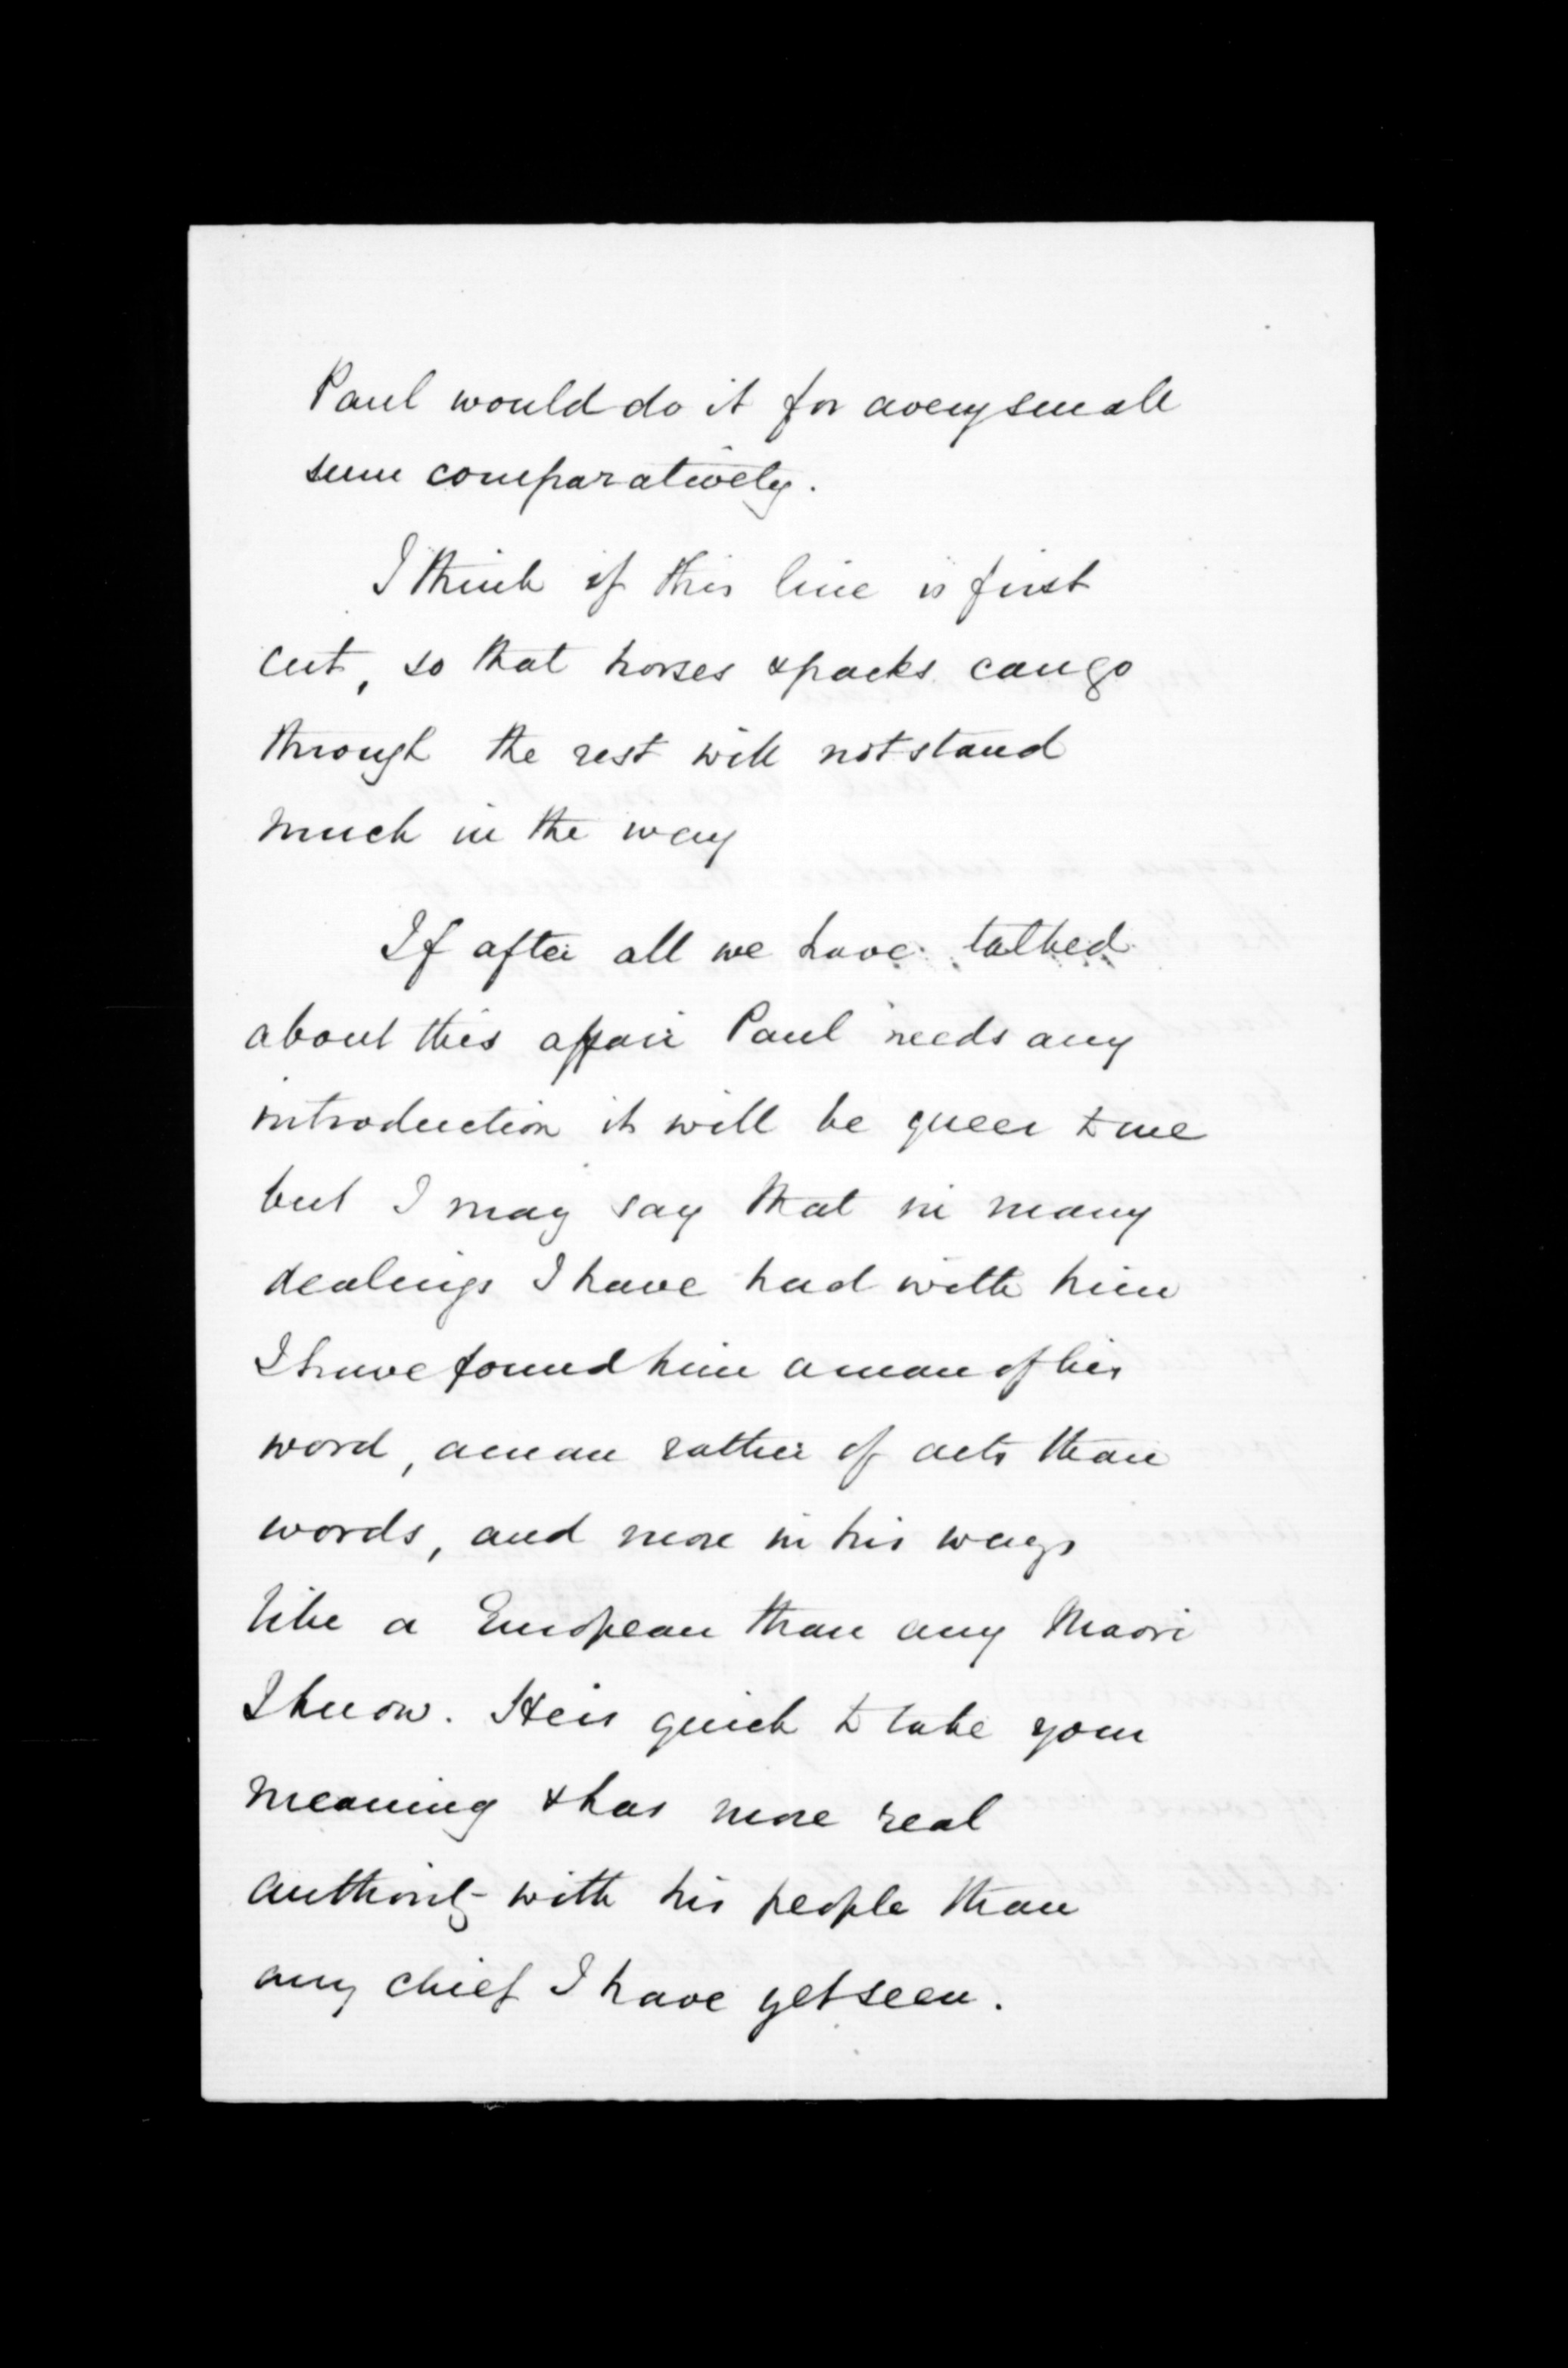 Paul would do it for a very small
sum comparatively.
I think if this line is first
cut, so that horses & packs can go
through the rest will not stand
much in the way
If after all we have talked
about this affair Paul needs any
introduction it will be queer to me
but I may say that in many
dealings I have had with him
I have found him a man of his
word, a man rather of acts than
words, and more in his ways
like a European than any Maori
I know. He is quick to take your
meaning & has more real
authority with his people than
any chief I have yet seen.